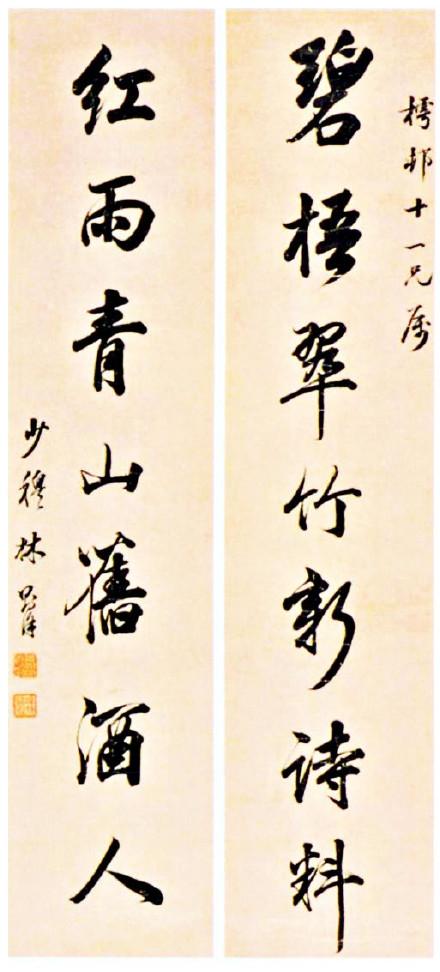 樗邨十一兄属
碧梧翠竹新詩料
紅雨青山舊酒人
少穆林則徐